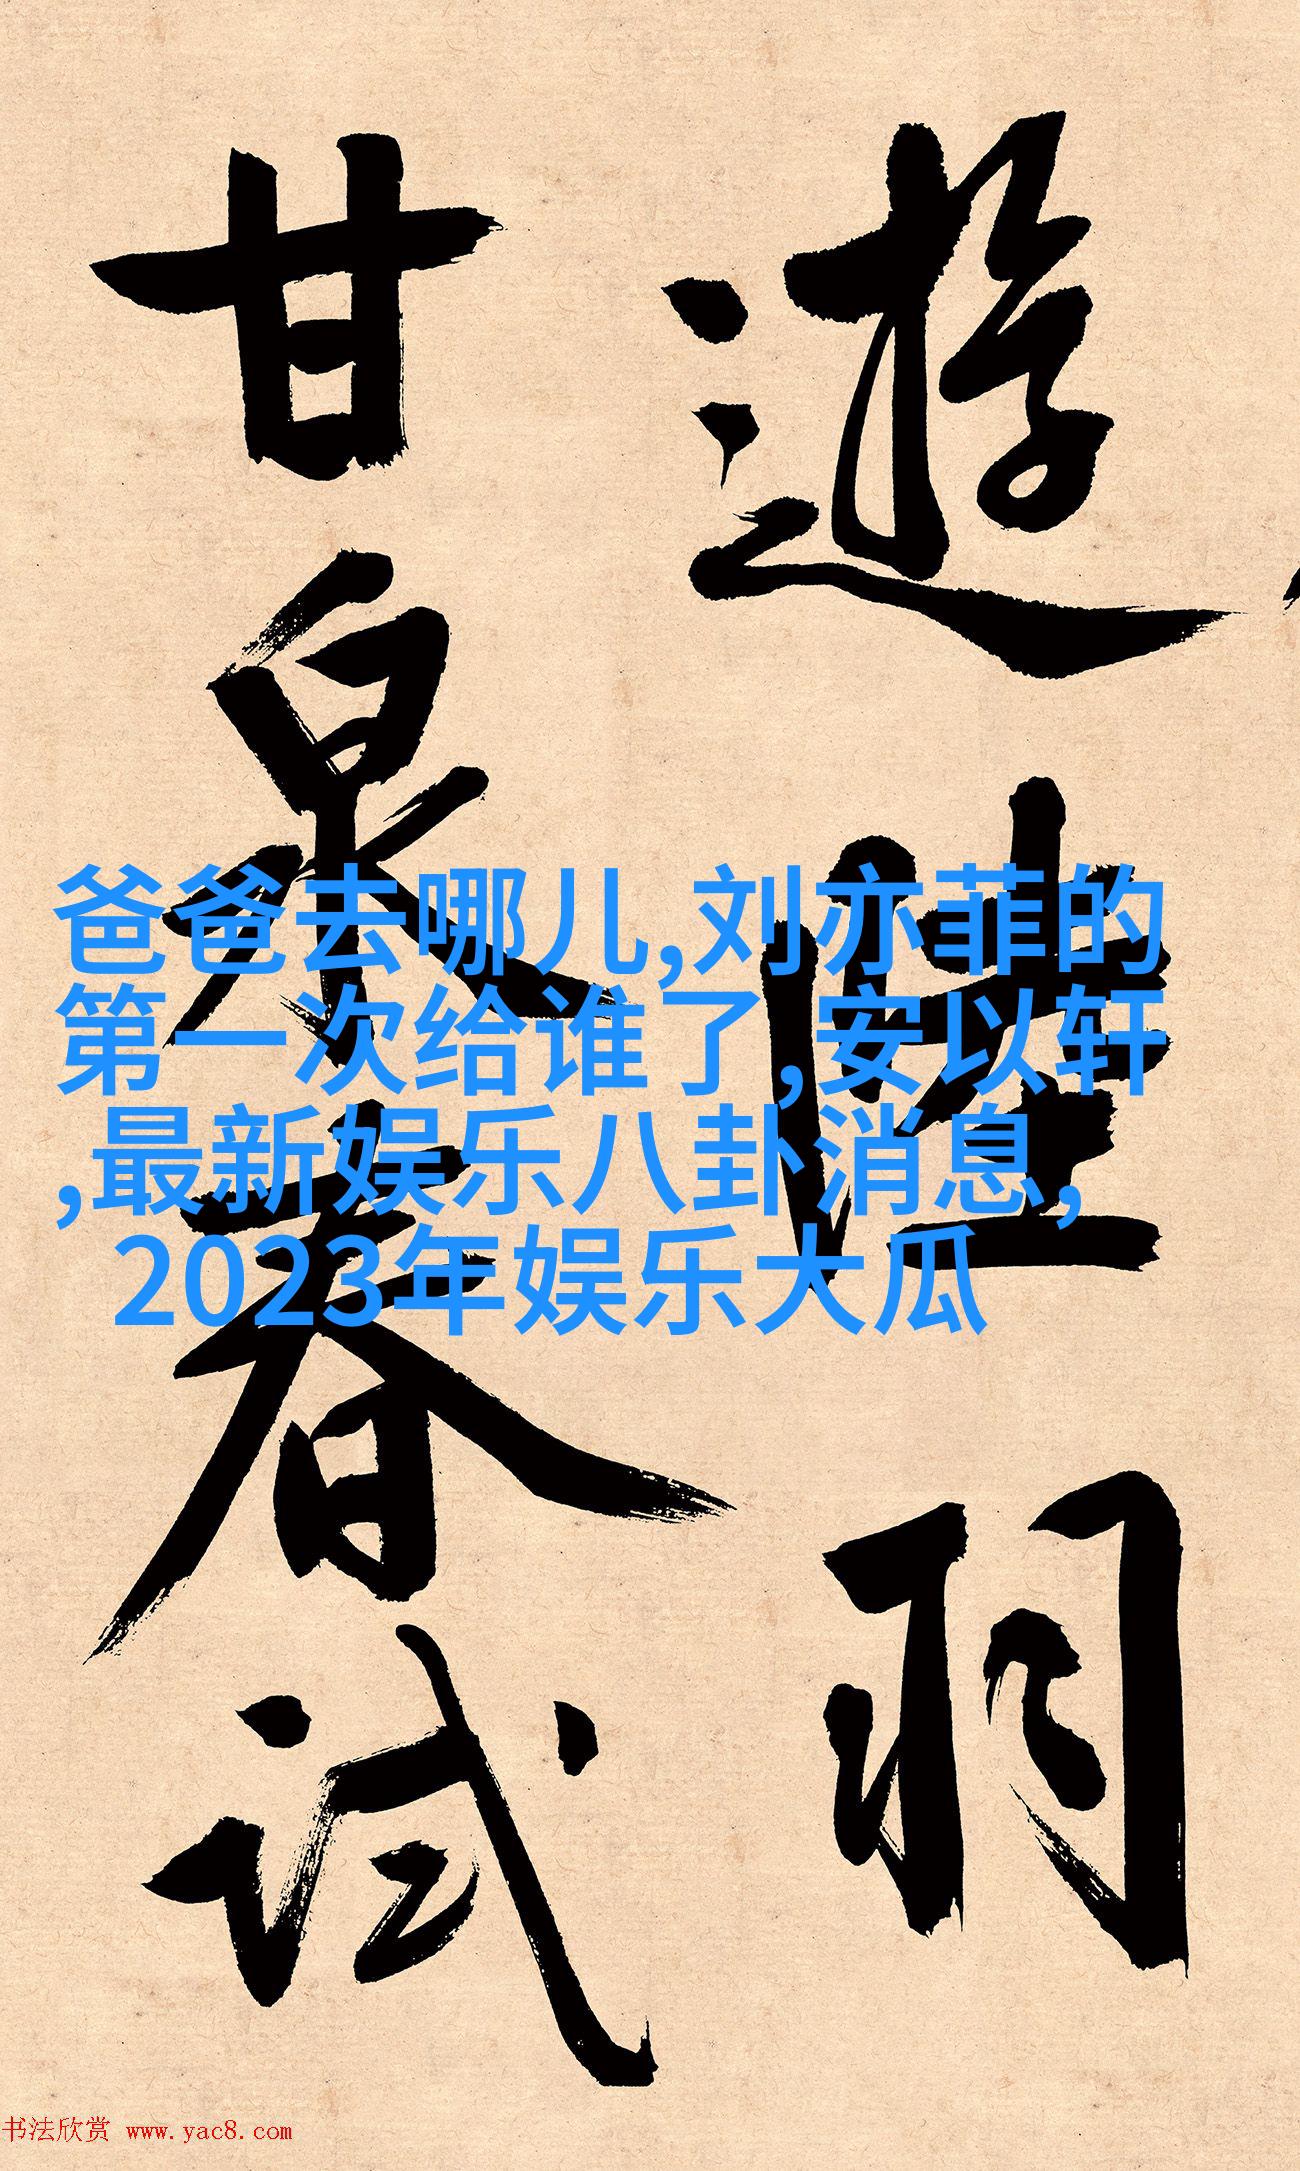 遊陸羽
甘泉春试
爸爸去哪儿,刘亦菲的
第一次给谁了,安以轩
,最新娱乐八卦消息,
2023年娱乐大瓜
书法欣赏 www.yac8.com